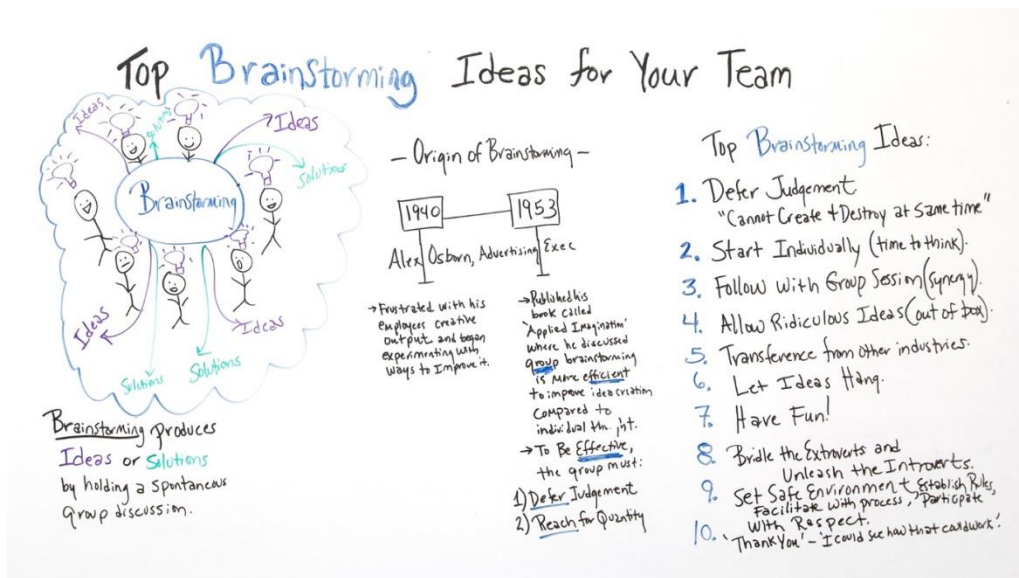 Top Brainstorming Ideas for Your Team
Ideas
Ideas
Solutions
Brainstorming
Ideas
Ideas
Solutions
Solutions
Brainstorming produces
Ideas or Solutions
by holding a spontaneous
group discussion.
- Origin of Brainstorming -
1940
1953
Alex Osborn, Advertising Exec
→ Frustrated with his
employees creative
output and began
experimenting with
ways to Improve it.
→ Published his
book called
'Applied Imagination'
where he discussed
group brainstorming
is more efficient
to improve idea creation
compared to
individual
→ To Be Effective,
the group must:
1) Defer Judgement
2) Reach for Quantity
Top Brainstorming Ideas:
1. Defer Judgement
"Cannot Create + Destroy at Same time"
2. Start Individually (time to think).
3. Follow with Group Session (synergy).
4. Allow Ridiculous Ideas (out of box).
5. Transference from other industries.
6. Let Ideas Hang.
7. Have Fun!
8. Bridle the Extroverts and
Unleash the Introverts.
9. Set Safe Environment Establish Rules,
Facilitate with process, 'Participate
With Respect.
10. 'Thank You' - 'I could see how that could work'.